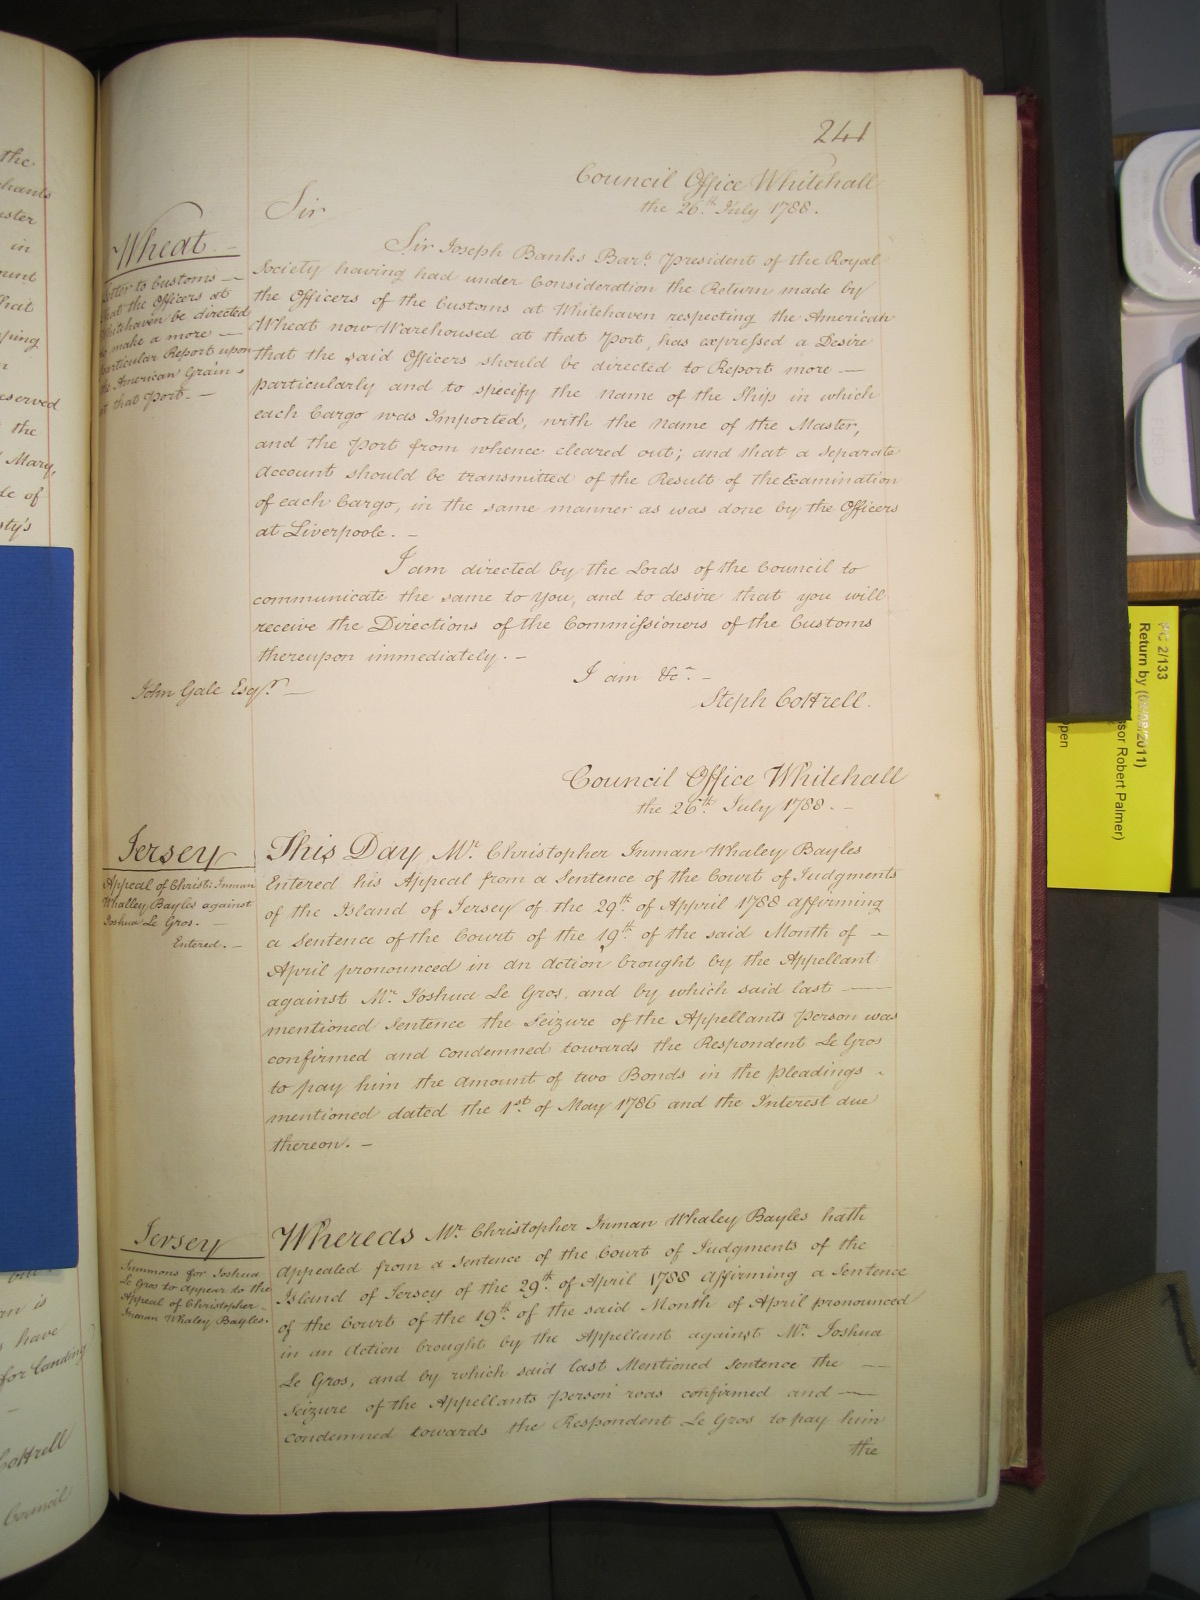 the
hants
in
ount
hat
ping
eserved
the
Mary,
de of
ty's
241
Council Office Whitehall
the 26th. July 1788.
Sir
Wheat
Letter to Customs —
that the Officers at
Whitehaven be directed
to make a more —
particular Report upon
the American Grain
at that Port. —
Sir Joseph Banks Bart. President of the Royal
Society having had under Consideration the Return made by
the Officers of the Customs at Whitehaven respecting the American
Wheat now Warehoused at that Port, has expressed a Desire
that the said Officers should be directed to Report more —
particularly and to specify the Name of the Ship in which
each Cargo was Imported, with the Name of the Master,
and the Port from whence cleared out; and that a separate
account should be transmitted of the Result of the Examination
of each Cargo, in the same manner as was done by the Officers
at Liverpoole. —
I am directed by the Lords of the Council to
communicate the same to You, and to desire that you will
receive the Directions of the Commissioners of the Customs
thereupon immediately. —
I am &c. —
John Gale Esqr. —
Steph Cottrell.
Council Office Whitehall
the 26th. July 1788. —
Jersey
Appeal of Christ: Inman
Whalley Bayles against
Joshua Le Gros. —
Entered. —
This Day Mr. Christopher Inman Whaley Bayles
Entered his Appeal from a Sentence of the Court of Judgments
of the Island of Jersey of the 29th. of April 1788 affirming
a Sentence of the Court of the 19th. of the said Month of —
April pronounced in an Action brought by the Appellant
against Mr. Joshua Le Gros, and by which said last —
mentioned Sentence the Seizure of the Appellants Person was
confirmed and condemned towards the Respondent Le Gros
to pay him the Amount of two Bonds in the Pleadings -
mentioned dated the 1st. of May 1786 and the Interest due
thereon. —
Jersey
Summons for Joshua
Le Gros to appear to the
Appeal of Christopher
Inman Whaley Bayles.
Whereas Mr. Christopher Inman Whaley Bayles hath
appealed from a Sentence of the Court of Judgments of the
Island of Jersey of the 29th. of April 1788 affirming a Sentence
of the Court of the 19th. of the said Month of April pronounced
in an Action brought by the Appellant against Mr. Joshua
Le Gros, and by which said last Mentioned Sentence the —
Seizure of the Appellants Person was confirmed and —
condemned towards the Respondent Le Gros to pay him
the
is
have
for landing
Cottrell
Council
PC 2/133
Return by (08/08/2011)
sor Robert Palmer)
pen